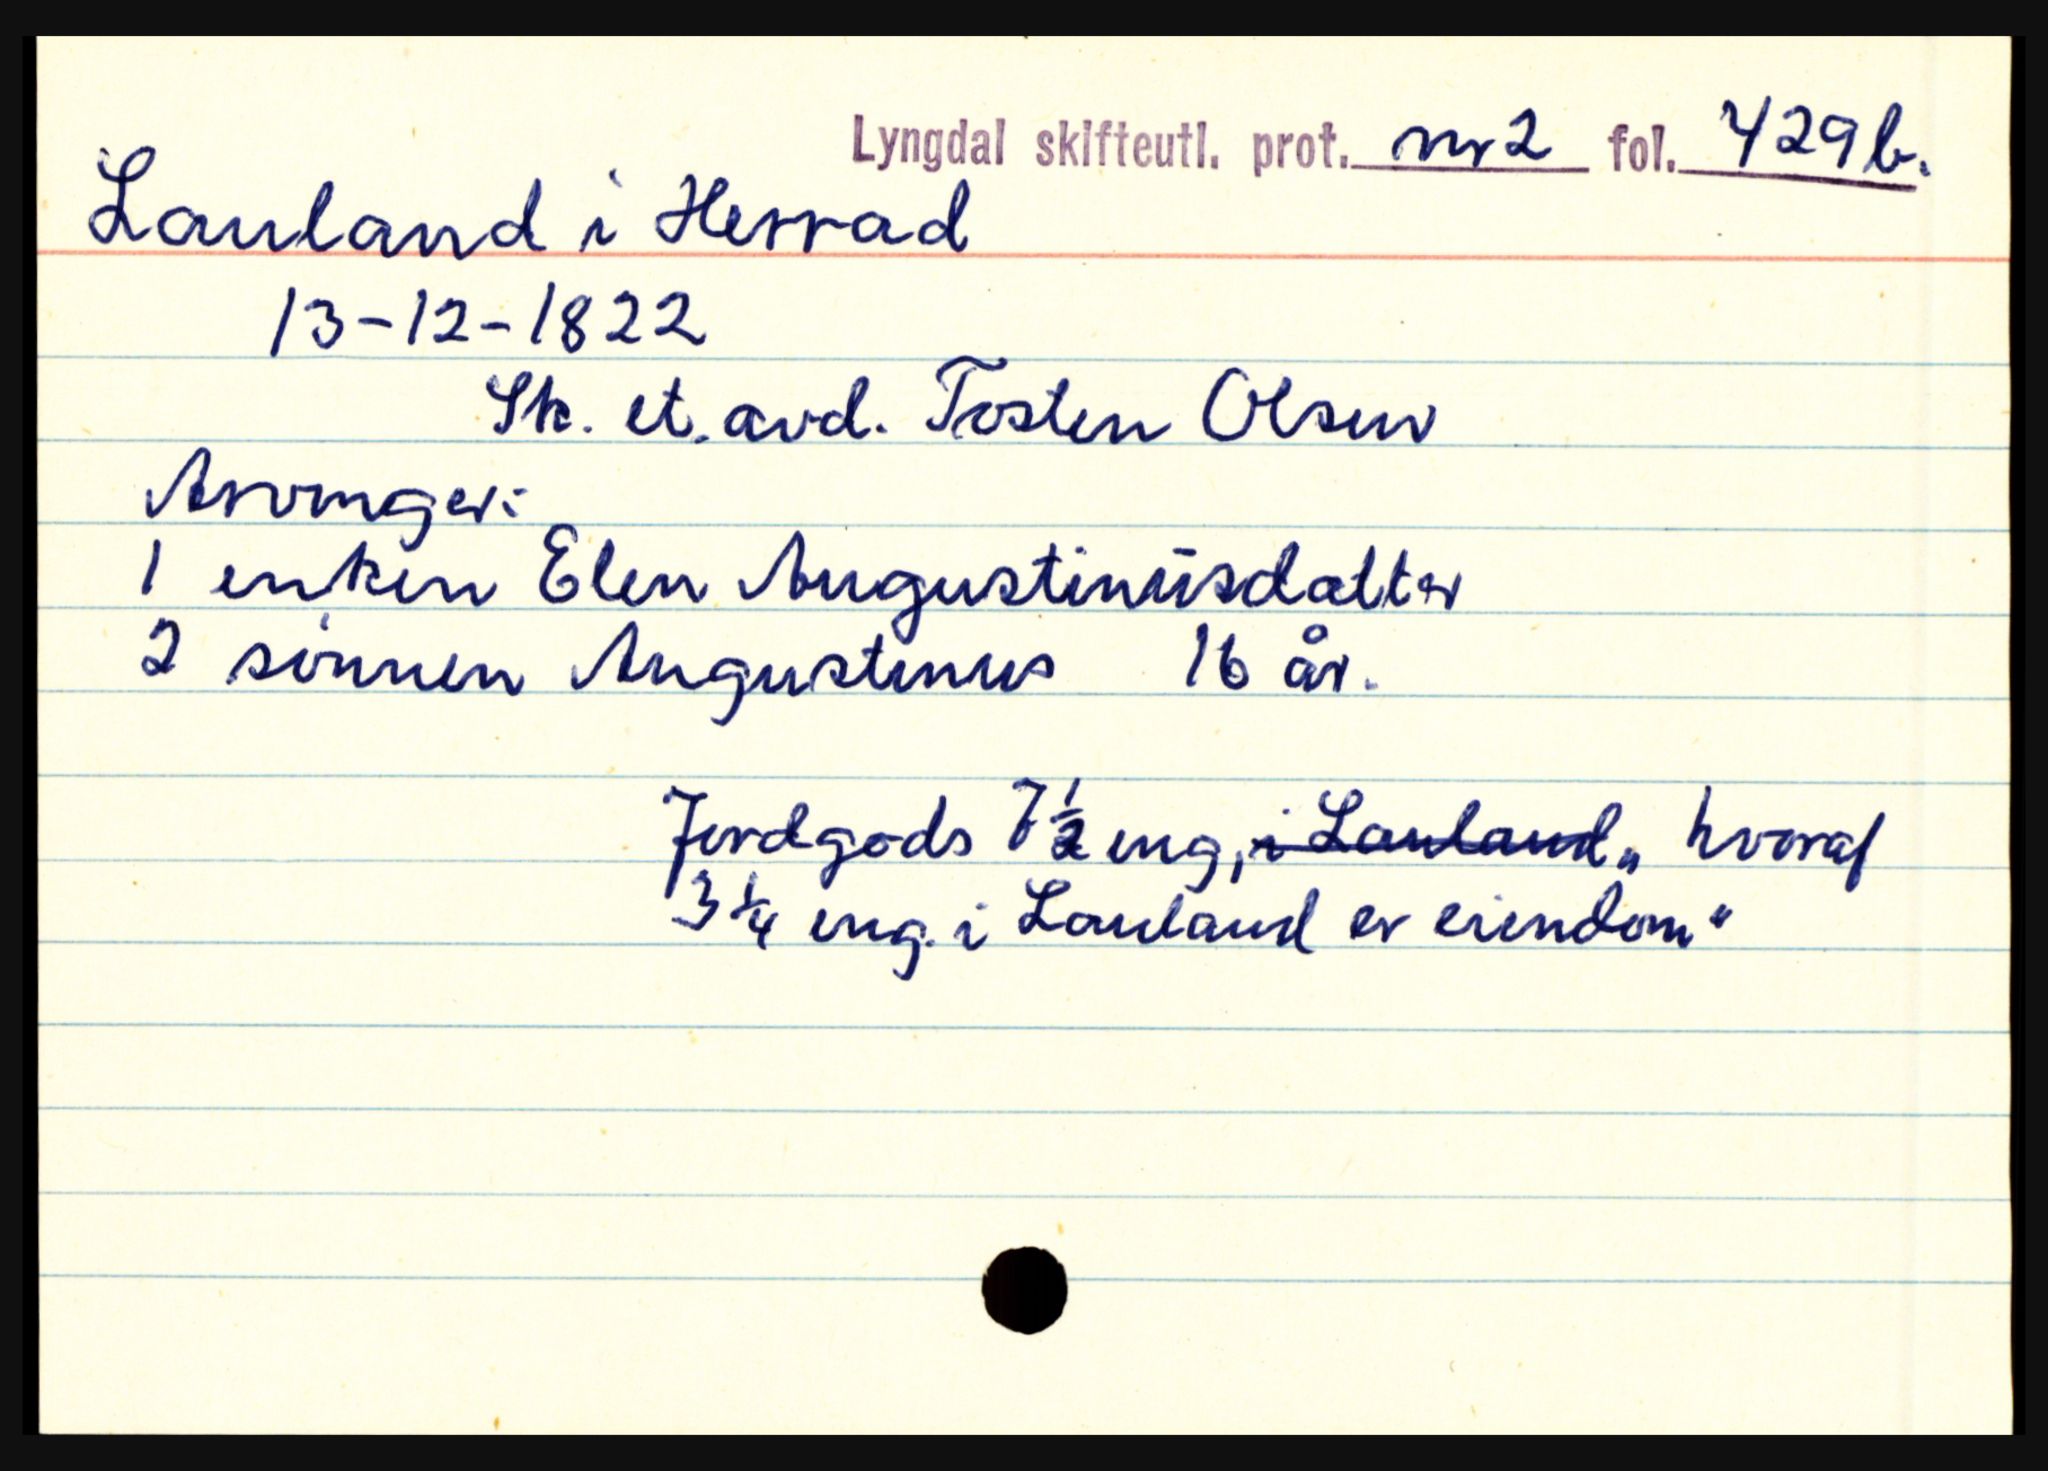 Lyngdal skifteutl. prot. nr 2 fol. 429b.
Lauland i Herrad
13-12-1822
Sk. et. avd. Tosten Olsen
Arvinger:
1 enken Elen Augustinusdatter
2 sønnen Augustinus 16 år.
Jordgods 7 1/2 eng, i Lauland „ hvoraf
3 1/4 eng. i Lauland er eiendom"